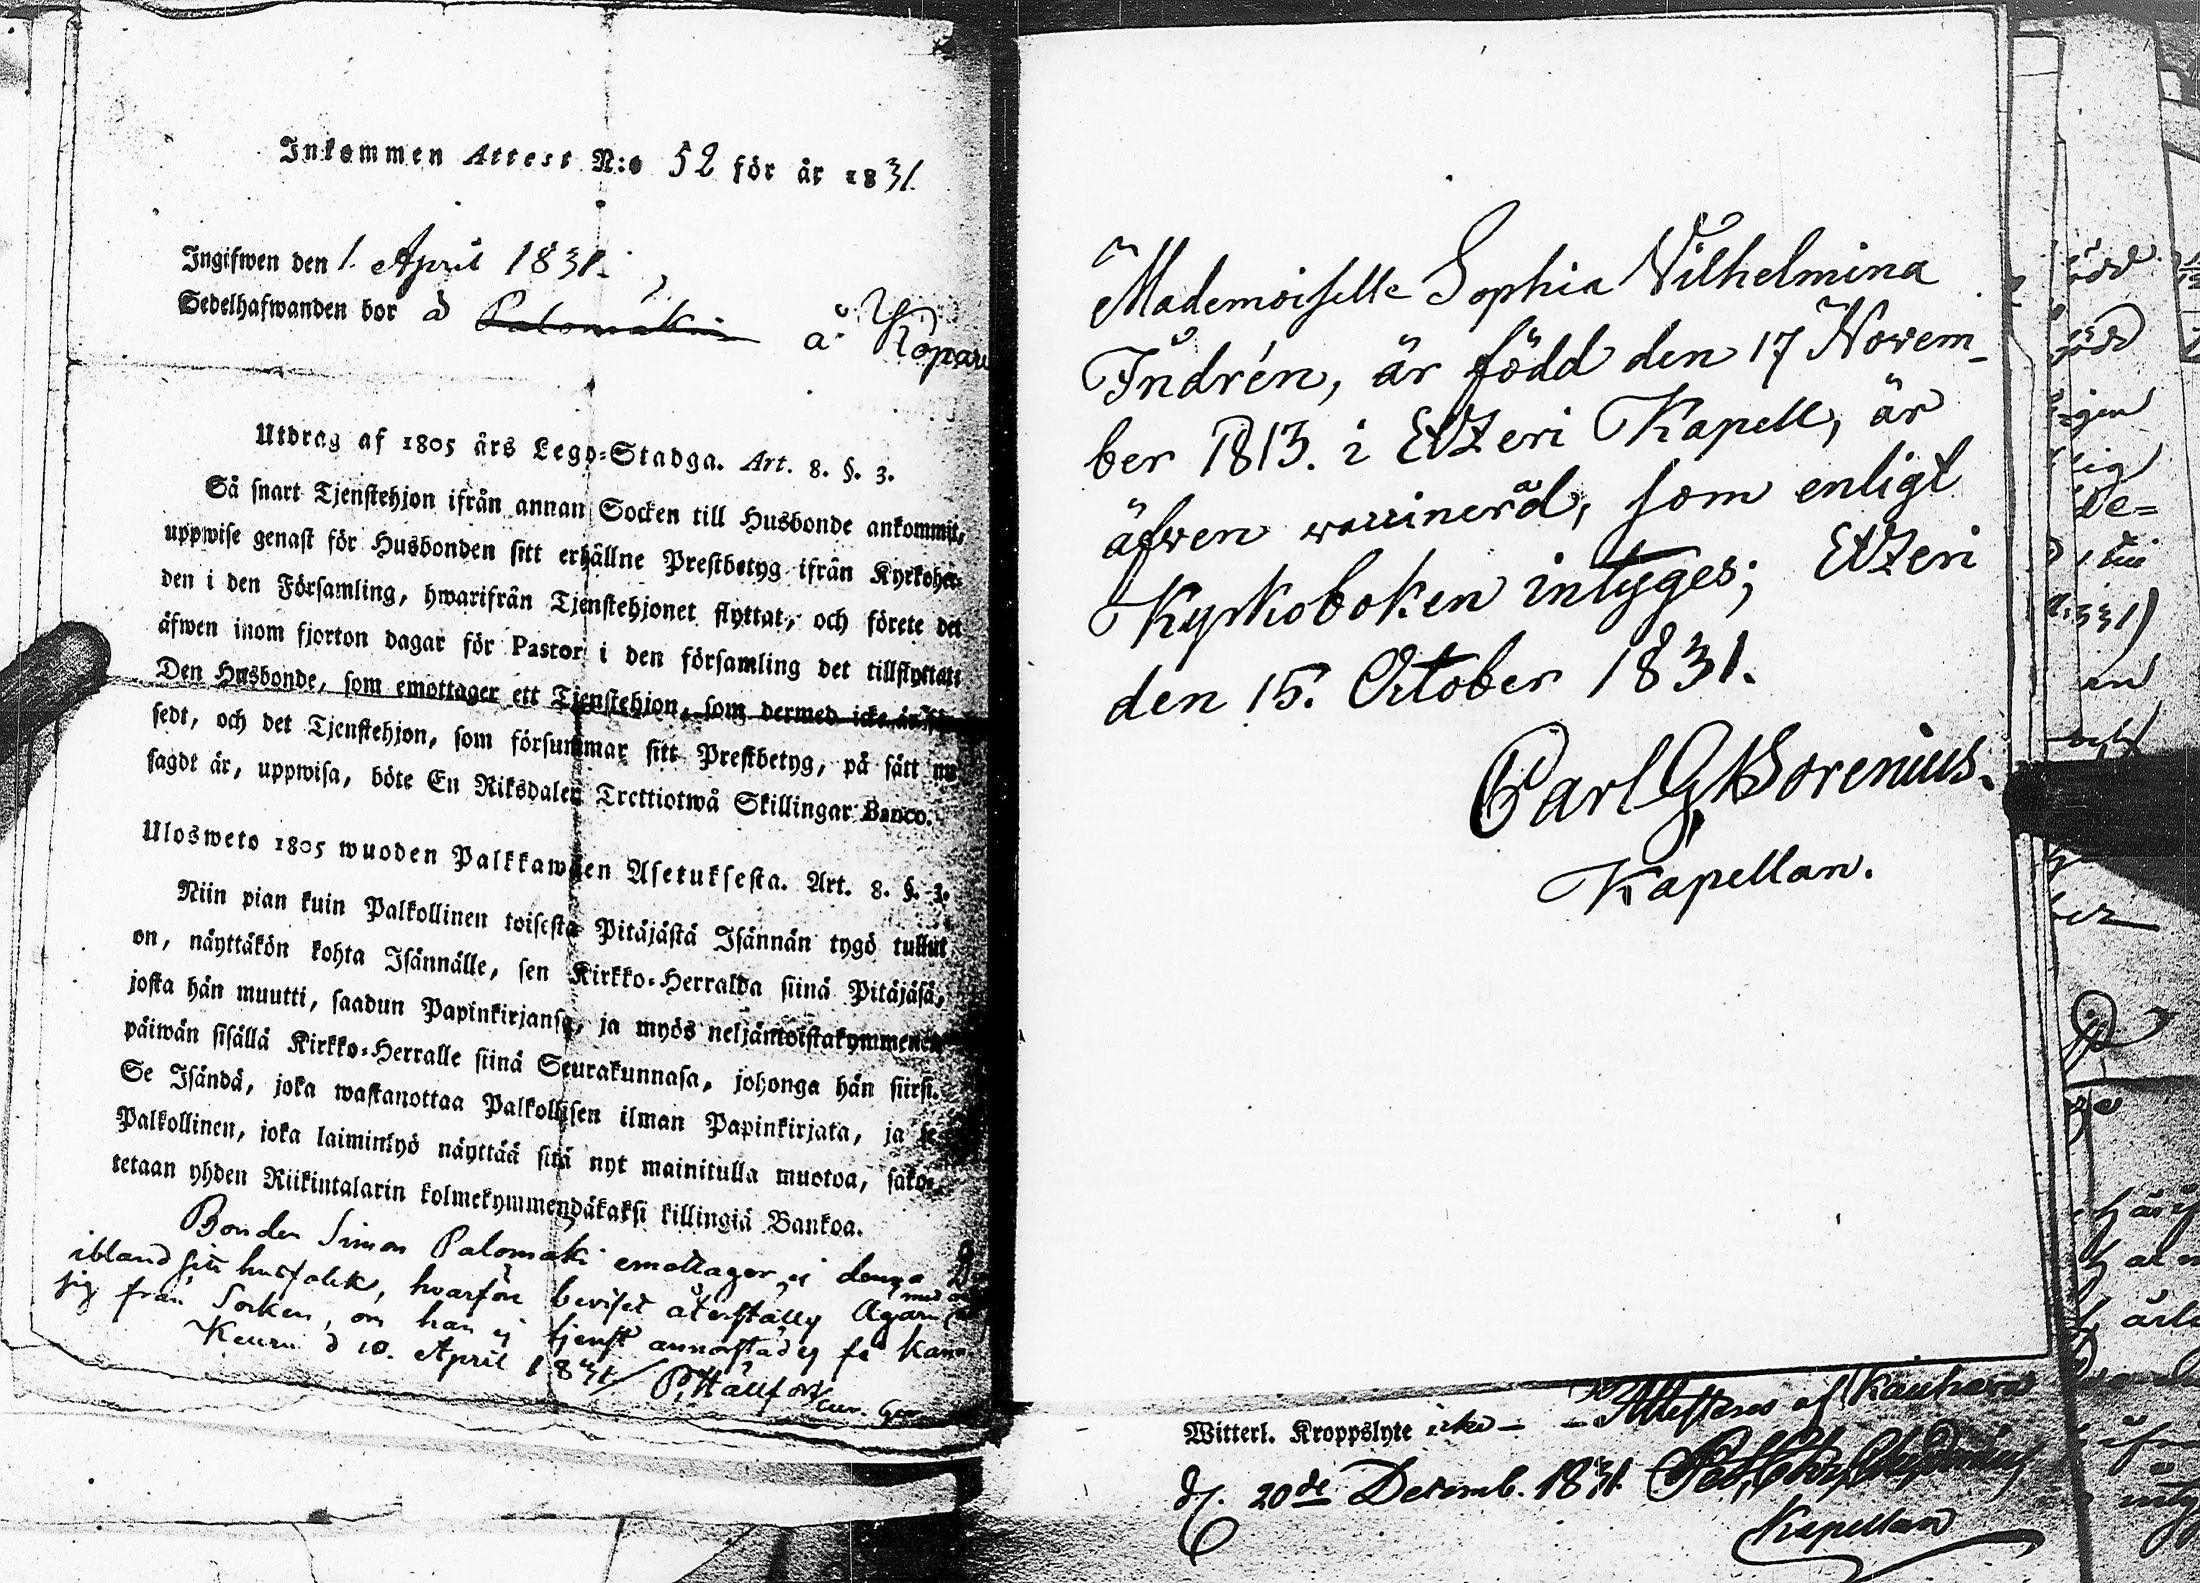 Inkommen Attest N:o 52 för år 1831.
Ingifwen den 1. April 1831.
Sedelhafwanden bor å Palomäki å Kopan
Utdrag af 1805 års Lego-Stadga. Art. 8. §. 3.
Så snart Tjenstehjon ifrån annan Socken till Husbonde ankommit,
uppwise genast för Husbonden sitt erhållne Prestbetyg ifrån Kyrkoher-
den i den Församling, hwarifrån Tjenstehjonet flyttat, och förete det
äfwen inom fjorton dagar för Pastor i den församling det tillflyttat.
Den Husbonde, som emottager ett Tjenstehjon, som dermed icke är för-
sedt, och det Tjenstehjon, som försummar sitt Prestbetyg, på sätt nu
sagdt är, uppwisa, böte En Riksdaler Trettiotwå Skillingar Banco.
Ulosweto 1805 wuoden Palkkawäen Asetuksesta. Art. 8. §. 3.
Niin pian kuin Palkollinen toisesta Pitäjästä Isännän tygö tullut
on, näyttäkön kohta Isännälle, sen Kirkko-Herralda siinä Pitäjäsä,
josta hän muutti, saadun Papinkirjansa, ja myös neljäntoistakymmenen
päiwän sisällä Kirkko-Herralle siinä Seurakunnasa, johonga hän siirsi.
Se Isändä, joka wastanottaa Palkollisen ilman Papinkirjata, ja se
Palkollinen, joka laiminlyö näyttää sitä nyt mainitulla muotoa, sako-
tetaan yhden Riikintalarin kolmekymmendäkaksi killingiä Bankoa.
Bonden Simon Palomäki emottager ej denna
ibland sitt husfolk, hvarföre beviset återställes Ägaren med
sig från Socken, om han ej tjenst annorstädes få kan.
Keuru d 10. April 1831 P. Hällfors
Mademoiselle Sophia Vilhelmina
Indrén, är född den 17 Novem-
ber 1813. i Etzeri Kapell, är
äfven vaccinerad, som enligt
Kyrkoboken intyges; Etzeri
den 15. October 1831.
Carl G Borenius.
Kapellan.
Witterl. Kroppslyte icke — Attesteras af Kauhava
d. 20de Decemb. 1831.
Kapellan